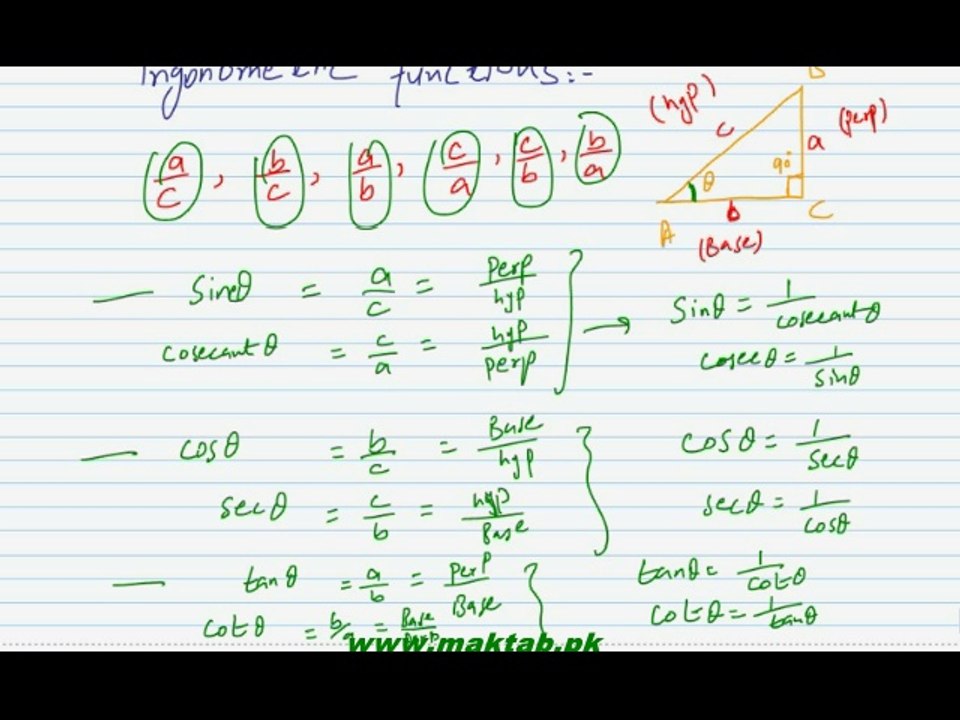 Trigonometric functions:-
a/c, b/c, a/b, c/a, c/b, b/a
B
(hyp) c
a (perp)
90°
θ
A b C
(Base)
Sinθ = a/c = Perp/hyp
cosecant θ = c/a = hyp/perp
Sinθ = 1/cosecantθ
cosecθ = 1/sinθ
cosθ = b/c = Base/hyp
secθ = c/b = hyp/Base
cosθ = 1/secθ
secθ = 1/cosθ
tanθ = a/b = Perp/Base
cotθ = b/a = Base/perp
tanθ = 1/cotθ
cotθ = 1/tanθ
www.maktab.pk